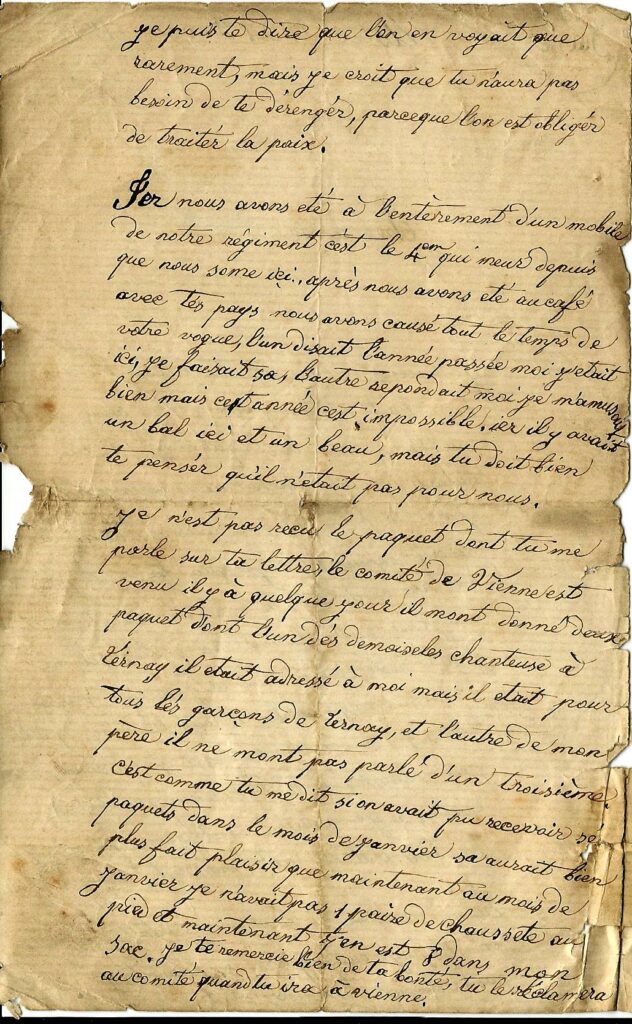 je puis te dire que l'on en voyait que
rarement, mais je croit que tu n'aura pas
besoin de te dérengér, parceque l'on est obligér
de traitér la paix.
Ier nous avons eté à l'entèrement d'un mobile
de notre régiment c'est le 4em qui meur depuis
que nous some ici., après nous avons eté au café
avec tés pays nous avons causé tout le temps de
votre vogue, l'un disait l'année passée moi j'etait
ici, je faisait sa, l'autre repondait moi je m'amusait
bien mais cet année c'est impossible. ier il y avait
un bal ici et un beau, mais tu doit bien
te pensér qu'il n'etait pas pour nous.
je n'est pas recu le paquet dont tu me
parle sur ta lettre, le comité de Vienne est
venu il y à quelque jour il mont donné deux
paquet dont l'un dés demoiseles chanteuse à
Ternay il etait adressé à moi mais il etait pour
tous lés garçons de Ternay, et l'autre de mon
père il ne mont pas parlé d'un troisième.
c'est comme tu me dit si on avait pu recevoir se
paquets dans le mois de janvier sa aurait bien
plus fait plaisir que maintenant au mois de
janvier je n'avait pas 1 paire de chaussete au
pied et maintenant j'en est 8 dans mon
sac. je te remercie bien de ta bonté, tu le réclamera
au comité quand tu ira à vienne.